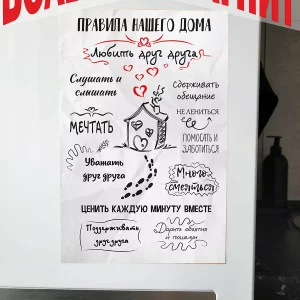 ПРАВИЛА НАШЕГО ДОМА
Любить друг друга
Слушать и
слышать
Сдерживать
обещание
НЕ ЛЕНИТЬСЯ
МЕЧТАТЬ
ПОМОГАТЬ И
ЗАБОТИТЬСЯ
Уважать
друг друга
Много
смеяться
ЦЕНИТЬ КАЖДУЮ МИНУТУ ВМЕСТЕ
Поддерживать
друг друга
Дарить объятия
и поцелуи